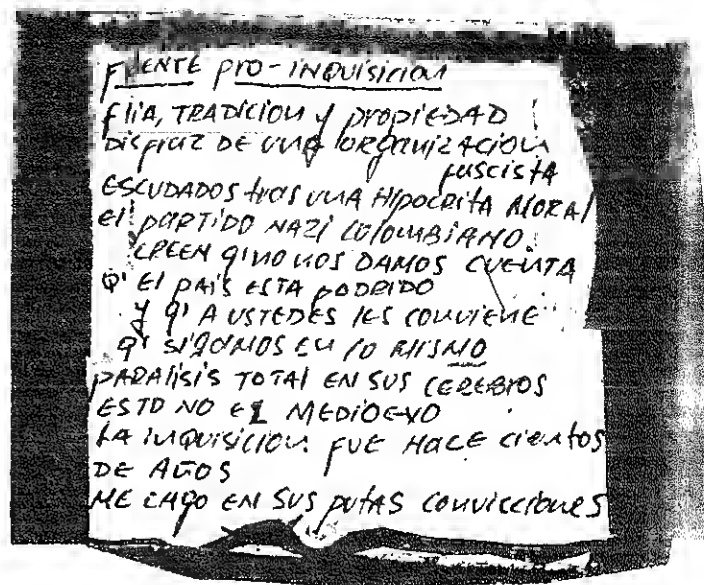 FRENTE PRO-INQUISICION
FLIA, TRADICION Y PROPIEDAD
DISFRAZ DE UNA ORGANIZACION
FASCISTA
ESCUDADOS tras UNA HIPOCRITA MORAL
el PARTIDO NAZI COLOMBIANO.
CREEN q' NO NOS DAMOS CUENTA
q' El PAIS ESTA PODRIDO
y q' A USTEDES lES CONVIENE
q' SIGAMOS EN lO MISMO
PARALISIS TOTAl EN SUS CEREBROS
ESTO NO ES MEDIOEVO
LA INQUISICION FUE HACE cientos
DE AÑOS
ME CAGO EN SUS PUTAS CONVICCIONES